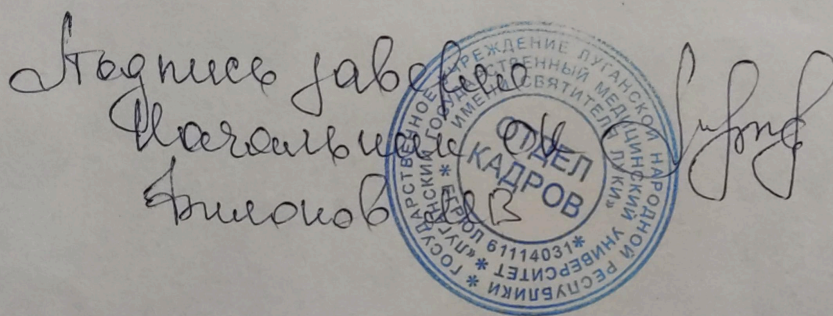 Подпись заверяю
Начальник ОК
Филонов
* ГОСУДАРСТВЕННОЕ УЧРЕЖДЕНИЕ ЛУГАНСКОЙ НАРОДНОЙ РЕСПУБЛИКИ
* «ЛУГАНСКИЙ ГОСУДАРСТВЕННЫЙ МЕДИЦИНСКИЙ УНИВЕРСИТЕТ
ИМЕНИ СВЯТИТЕЛЯ ЛУКИ»
* ЕГРЮЛ 61114031*
ОТДЕЛ
КАДРОВ